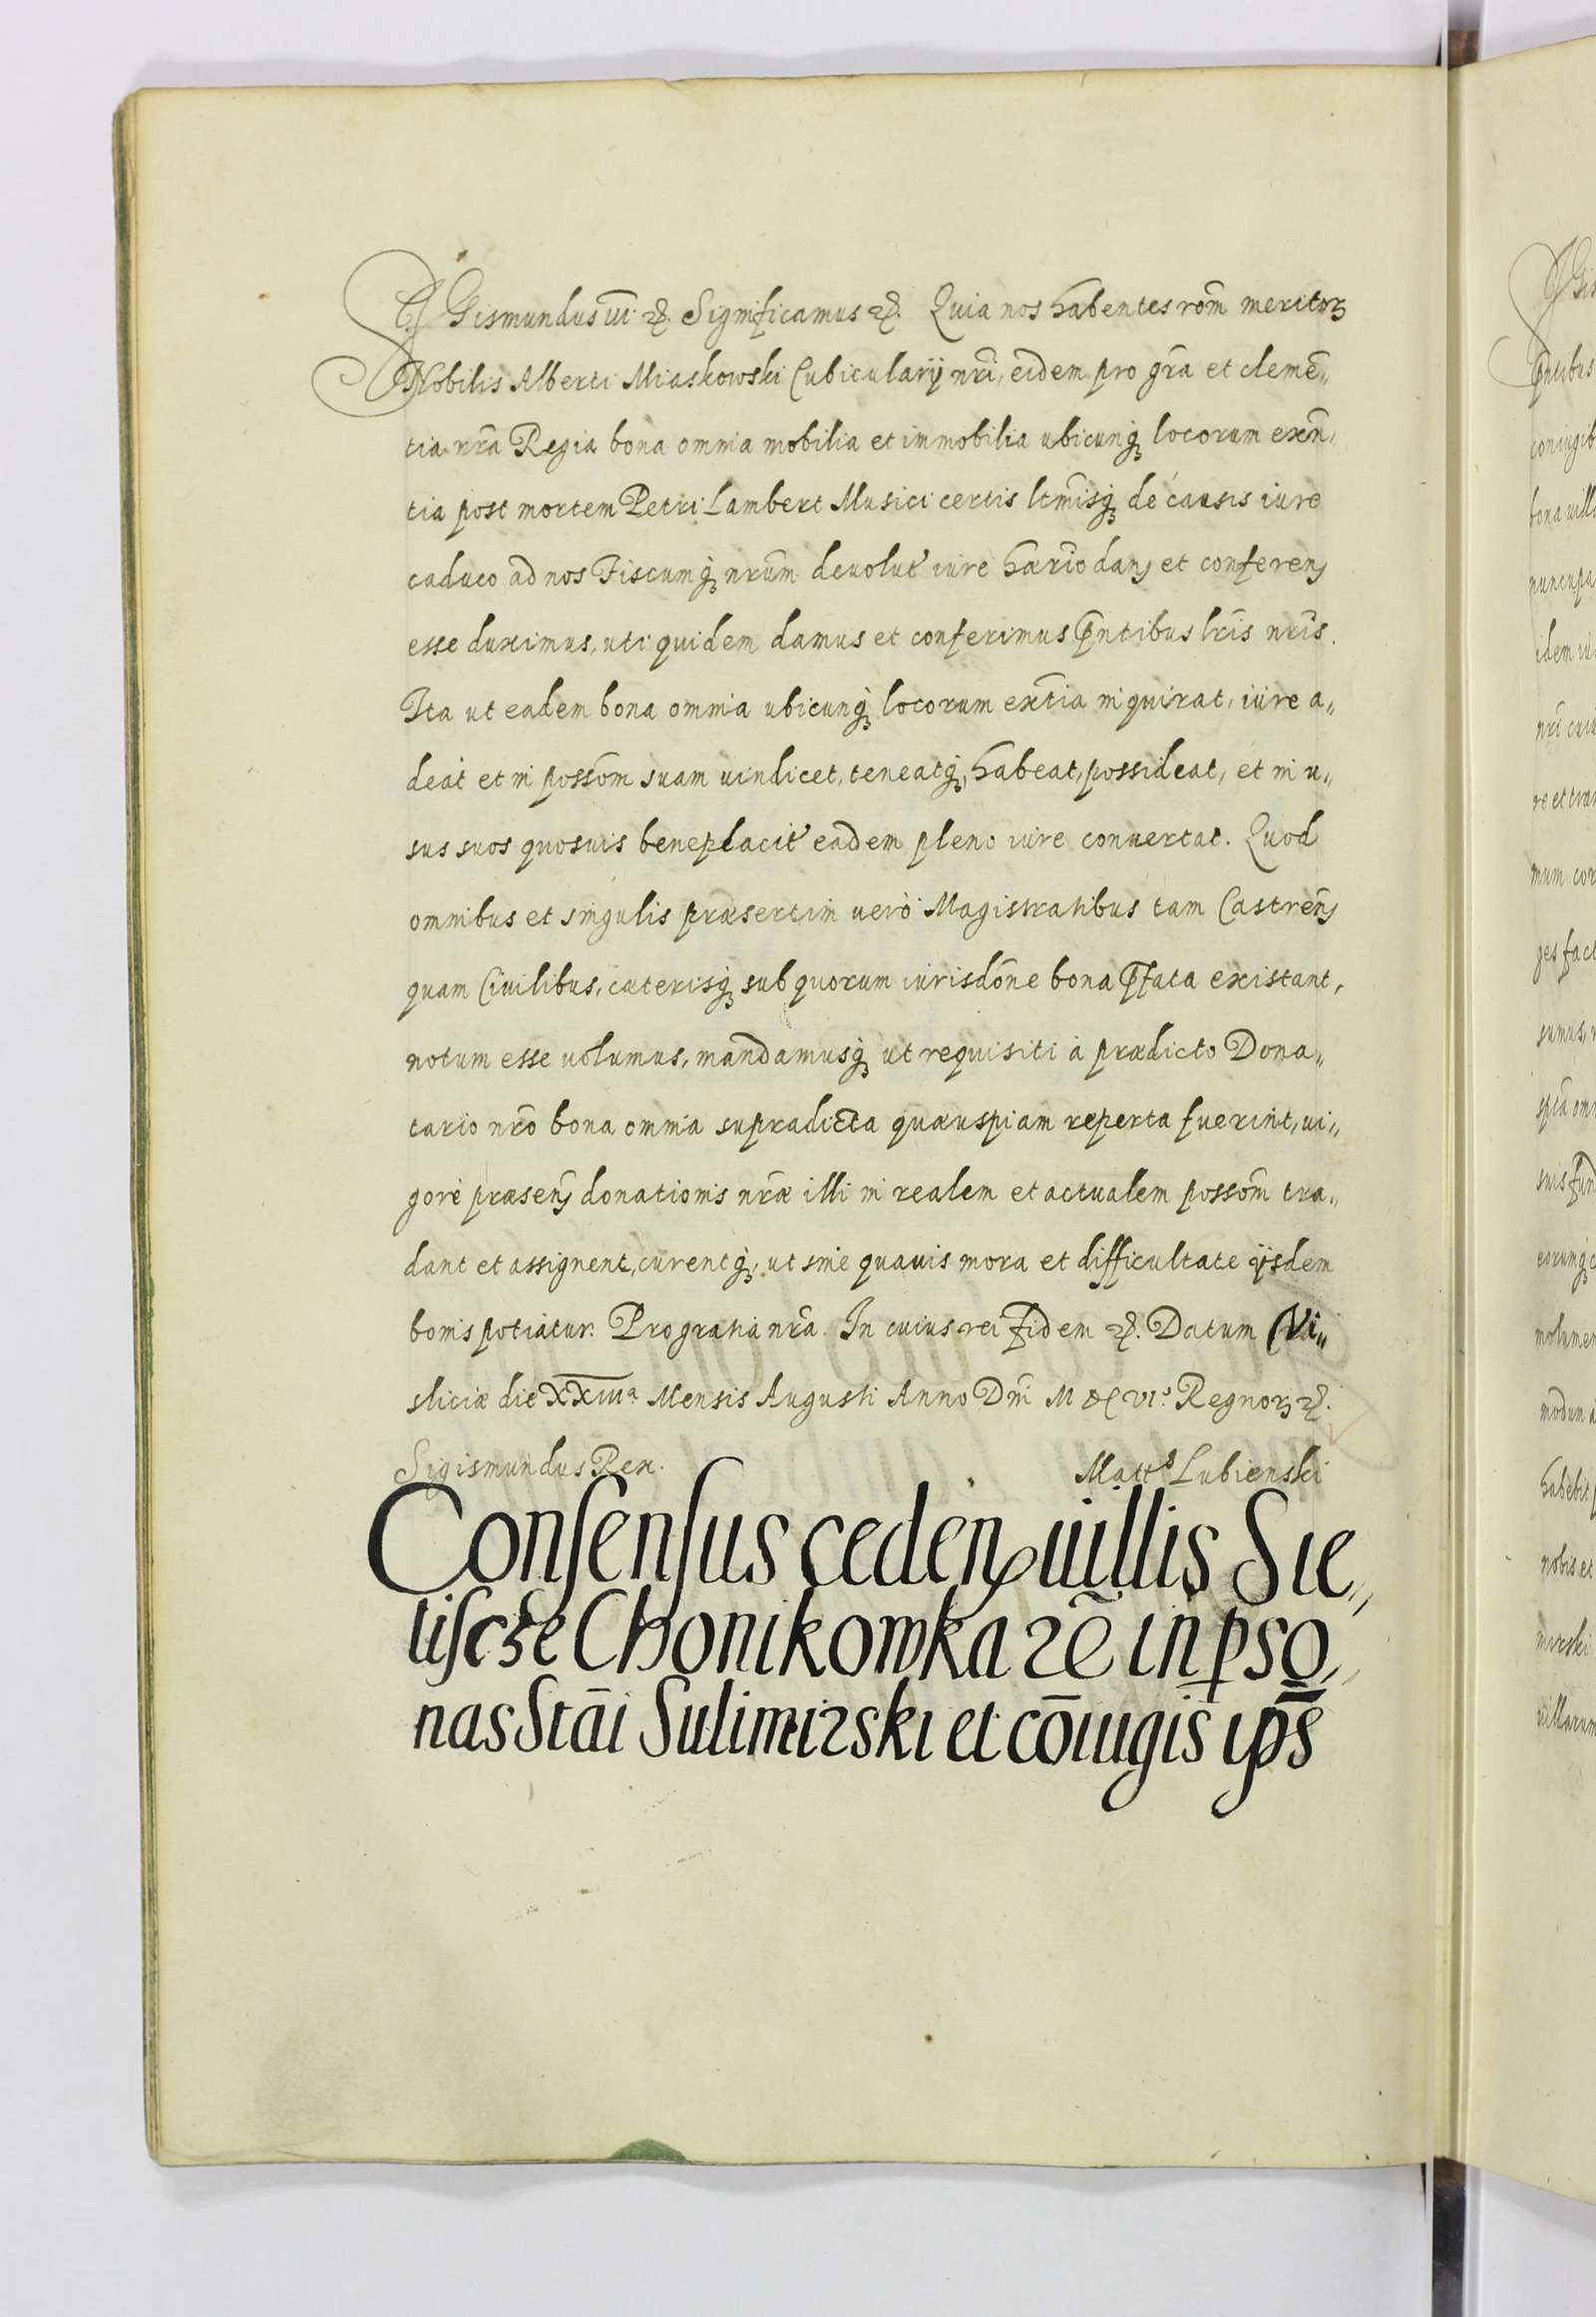 SiGismundus iii ꝛc̃. Significamus ꝛc̃. Quia nos habentes rõm meritoꝝ
Nobilis Alberti Miaskowski Cubicularij nri͂, eidem pro gr͂a et clemẽ„
tia nr͂a Regia bona omnia mobilia et immobilia ubicunqꝫ locorum exñ,
tia post mortem Petri Lambert Musici certis ltm͂isqꝫ de causis iure
caduco ad nos Fiscumqꝫ nrũm deuolut' iure hãrio danꝭ et conferenꝭ
esse duximus, uti quidem damus et conferimus pñtibus lrĩs nrĩs.
Ita ut eadem bona omnia ubicunqꝫ locorum exñtia inquirat, iure a„
deat et in possõm suam uindicet, teneatqꝫ, habeat, possideat, et in u„
sus suos quosuis beneplacit' eadem pleno iure conuertat. Quod
omnibus et singulis præsertim uerò Magistratibus tam Castrenꝭ
quam Ciuilibus, cæterisqꝫ sub quorum iurisdõne bona p̃fata existant,
notum esse uolumus, mandamusqꝫ ut requisiti à prædicto Dona„
tario nrõ bona omnia supradicta quæuspiam reperta fuerint, ui„
gore præsenꝭ donationis nræ̃ illi in realem et actualem possõm tra„
dant et assignent, curentqꝫ, ut sine quauis mora et difficultate ijsdem
bonis potiatur. Pro gratia nrã. In cuius rei fidem ꝛc̃. Datum Vi„
sliciæ die XXiiiᵃ Mensis Augusti Anno Dñi M DC VIᵒ. Regnoꝝ ꝛc̃.
Sigismundus Rex. Mattˢ Lubienski
Conſenſus cedenꝭ uillis Sie„
liſcze Chonikowka ꝛc̃ in ꝑso„
nas Stãi Sulimirski et cõiugis ip̃s